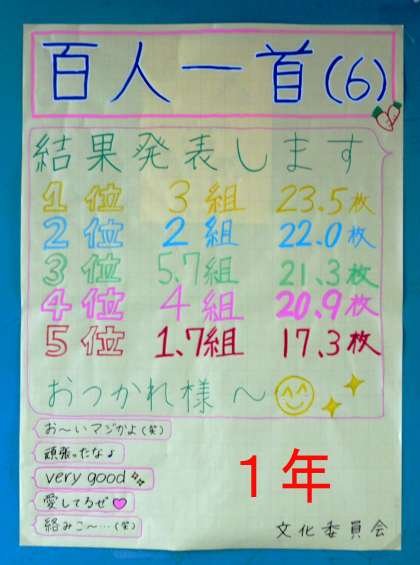 百人一首(6)
結果発表します
1位 3組 23.5枚
2位 2組 22.0枚
3位 5.7組 21.3枚
4位 4組 20.9枚
5位 1.7組 17.3枚
おつかれ様〜
お〜いマジかよ(笑)
頑張ったな♪
very good
愛してるぜ♡
絡みこ〜…(笑)
1年
文化委員会